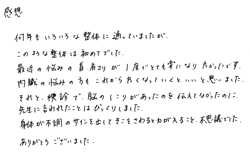 感想
何年もいろいろな整体に通っていましたが、
このような整体は初めてでした。
最近の悩みの肩こりが1度でとても楽になりありがたいです。
内臓の悩みの方もこれからよくなっていくといいと思いました。
それと、横診で、脳のしこりがあったのを伝えてなかったのに、
先生に言われたことはびっくりしました。
身体が不調のサインを出してきことをされるとわかること、不思議でした。
ありがとうございました。